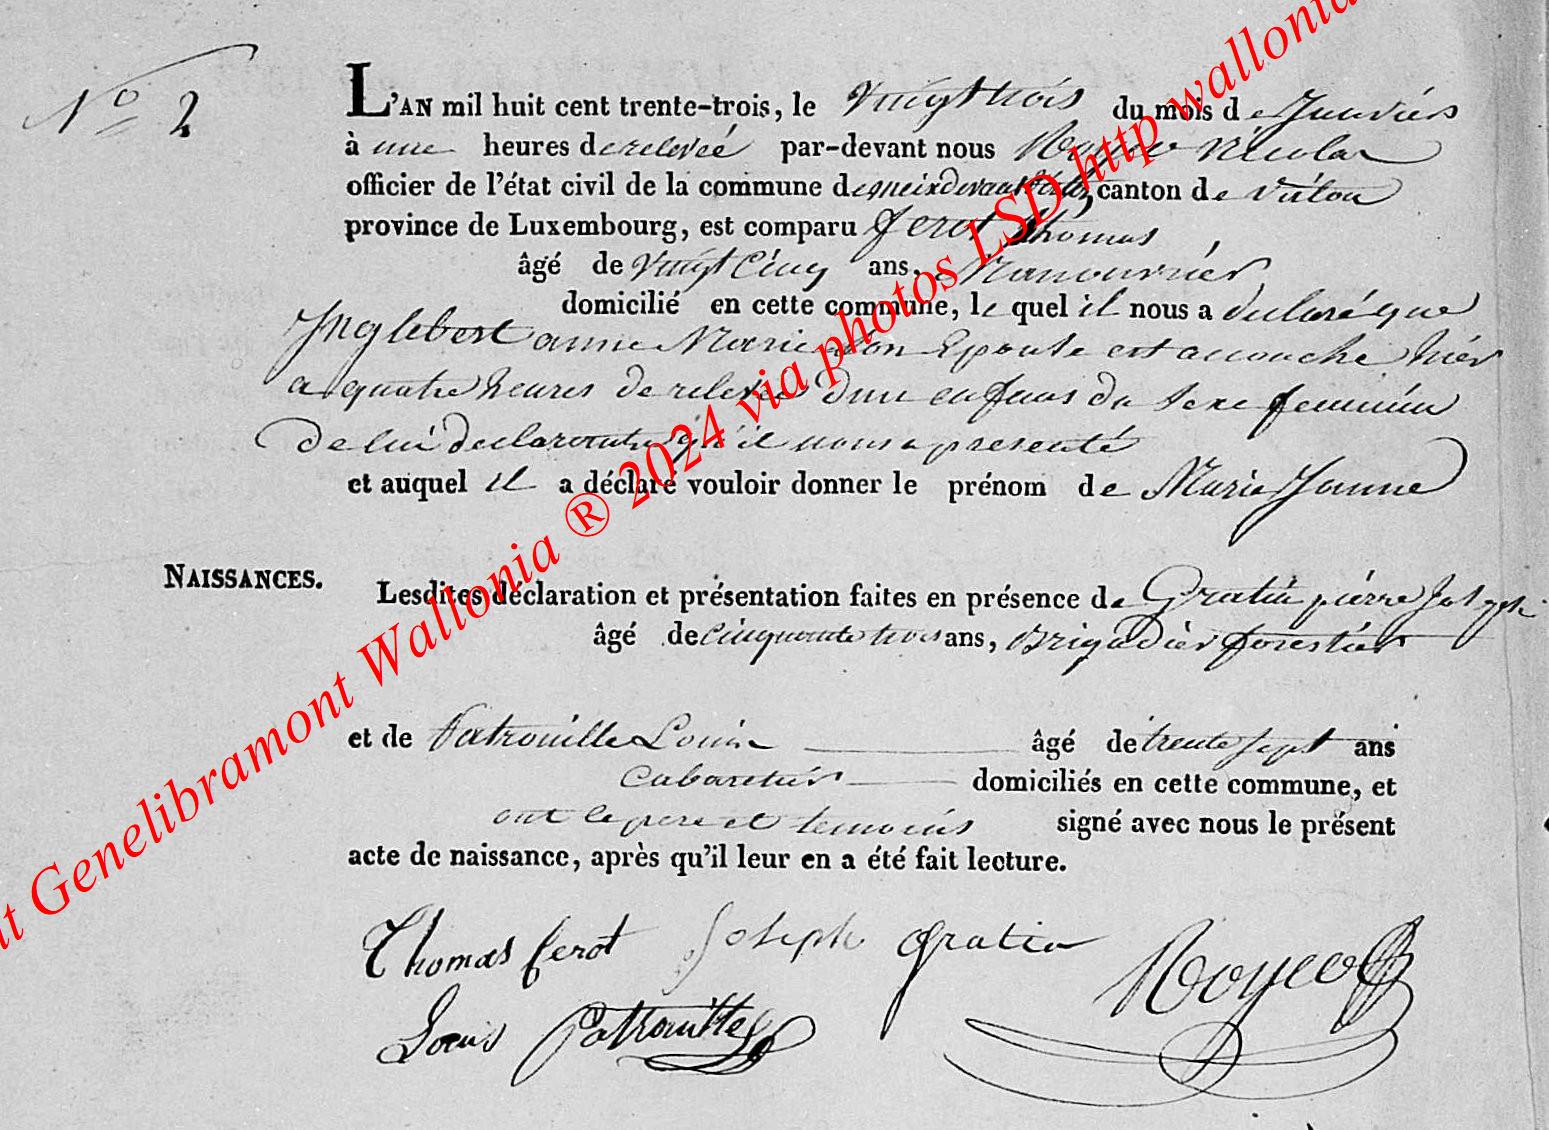 N° 2
L'AN mil huit cent trente-trois, le vingt trois du mois de Janviér
à une heures de relevéé par-devant nous Nicolas
officier de l'état civil de la commune de meix devant virton canton de virton
province de Luxembourg, est comparu ferot thomas
âgé de vingt Cinq ans, Manouvriér
domicilié en cette commune, le quel il nous a declaré que
Inglebert anne Marie son Epouse est accouché hiér
a quatre heures de relevéé d'un enfans du sexe féminin
de lui declarant et qu'il nous a presenté
et auquel il a déclaré vouloir donner le prénom de Marie Jeanne
NAISSANCES.
Lesdites déclaration et présentation faites en présence de Gratia piérre Joseph
âgé de cinquante trois ans, Brigadiér forestiér
et de Patrouille Louis âgé de trente sept ans
cabaretiér domiciliés en cette commune, et
ont le pere et temoins signé avec nous le présent
acte de naissance, après qu'il leur en a été fait lecture.
Thomas ferot Joseph Gratia
Louis Patrouille
Genelibramont Wallonia ® 2024 via photos LSD http wallonia